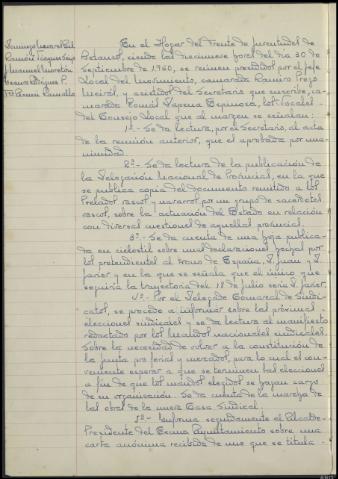 En el Hogar del Frente de Juventudes de
Betanzos, siendo las diecinueve horas del día 30 de
Septiembre de 1960, se reunen presididos por el Jefe
Local del Movimiento, camarada Ramiro
y asistidos del Secretario que suscribe, ca-
marada Tomás Dapena Espinosa, los Vocales
del Consejo Local que al margen se señalan:
1º.- Se da lectura, por el Secretario, al acta
de la reunión anterior, que es aprobada por una-
nimidad.
2º.- Se da lectura de la publicación de
la Delegación Nacional de Provincias, en la que
se publica copia del documento remitido a los
Prelados vascos y navarros por un grupo de sacerdotes
vascos, sobre la actuación del Estado en relación
con diversas cuestiones de aquellas provincias.
3º.- Se da cuenta de una hoja publica-
da en ciclostil sobre unas declaraciones hechas por
los pretendientes al trono de España, D. Juan y D.
Javier y en la que se señala que el único que
seguiría la trayectoria del 18 de Julio sería D. Javier.
4º.- Por el Delegado Comarcal de Sindi-
catos, se procede a informar sobre las próximas
elecciones sindicales y se da lectura al manifiesto
redactado por los Jurados nacionales sindicales.
Sobre la necesidad de volver a la constitución de
la Junta pro ferias y mercados, para lo cual es con-
veniente esperar a que se terminen las elecciones
a fin de que los mandos elegidos se hagan cargo
de su organización. Se da cuenta de la marcha de
las obras de la nueva Casa Sindical.
5º.- Informa seguidamente el Alcalde-
Presidente del Excmo Ayuntamiento sobre una
carta anónima recibida de uno que se titula